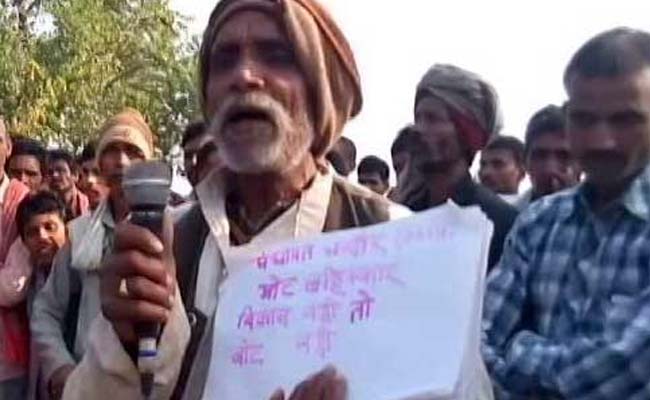 पंचायत
वोट बहिष्कार
विकास नही तो
वोट नही